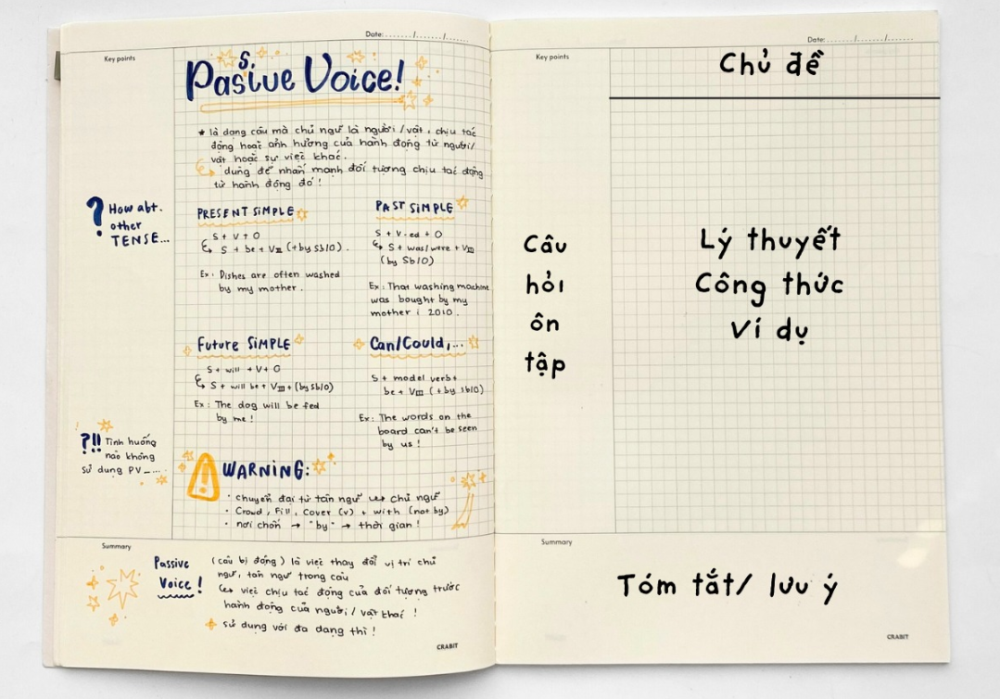 Date:......./......./.......
Key points
Passive Voice!
★ là dạng câu mà chủ ngữ là người/vật, chịu tác
động hoặc ảnh hưởng của hành động từ người/
vật hoặc sự việc khác.
↳ dùng để nhấn mạnh đối tượng chịu tác động
từ hành động đó!
? How abt.
other
TENSE...
PRESENT SIMPLE
S + V + O
↳ S + be + VIII (+by sb/O).
Ex: Dishes are often washed
by my mother.
PAST SIMPLE
S + V-ed + O
↳ S + was/were + VIII
(by Sb/O)
Ex: That washing machine
was bought by my
mother i 2010.
Future SIMPLE
S + will + V + O
↳ S + will be + VIII + (by Sb/O)
Ex: The dog will be fed
by me!
Can/Could,...
S + model verb +
be + VIII (+ by sb/O)
Ex: The words on the
board can't be seen
by us!
?!! Tình huống
nào không
sử dụng PV_....
WARNING:
• chuyển đại từ tân ngữ ↔ chủ ngữ
• Crowd, Fill, Cover (v) + with (not by)
• nơi chốn → "by" → thời gian!
Summary
Passive
Voice!
(câu bị động) là việc thay đổi vị trí chủ
ngữ, tân ngữ trong câu
↪ việc chịu tác động của đối tượng trước
hành động của người/vật khác!
sử dụng với đa dạng thì!
CRABIT
Date:......./......./.......
Key points
Chủ đề
Câu
hỏi
ôn
tập
Lý thuyết
Công thức
Ví dụ
Summary
Tóm tắt/ lưu ý
CRABIT